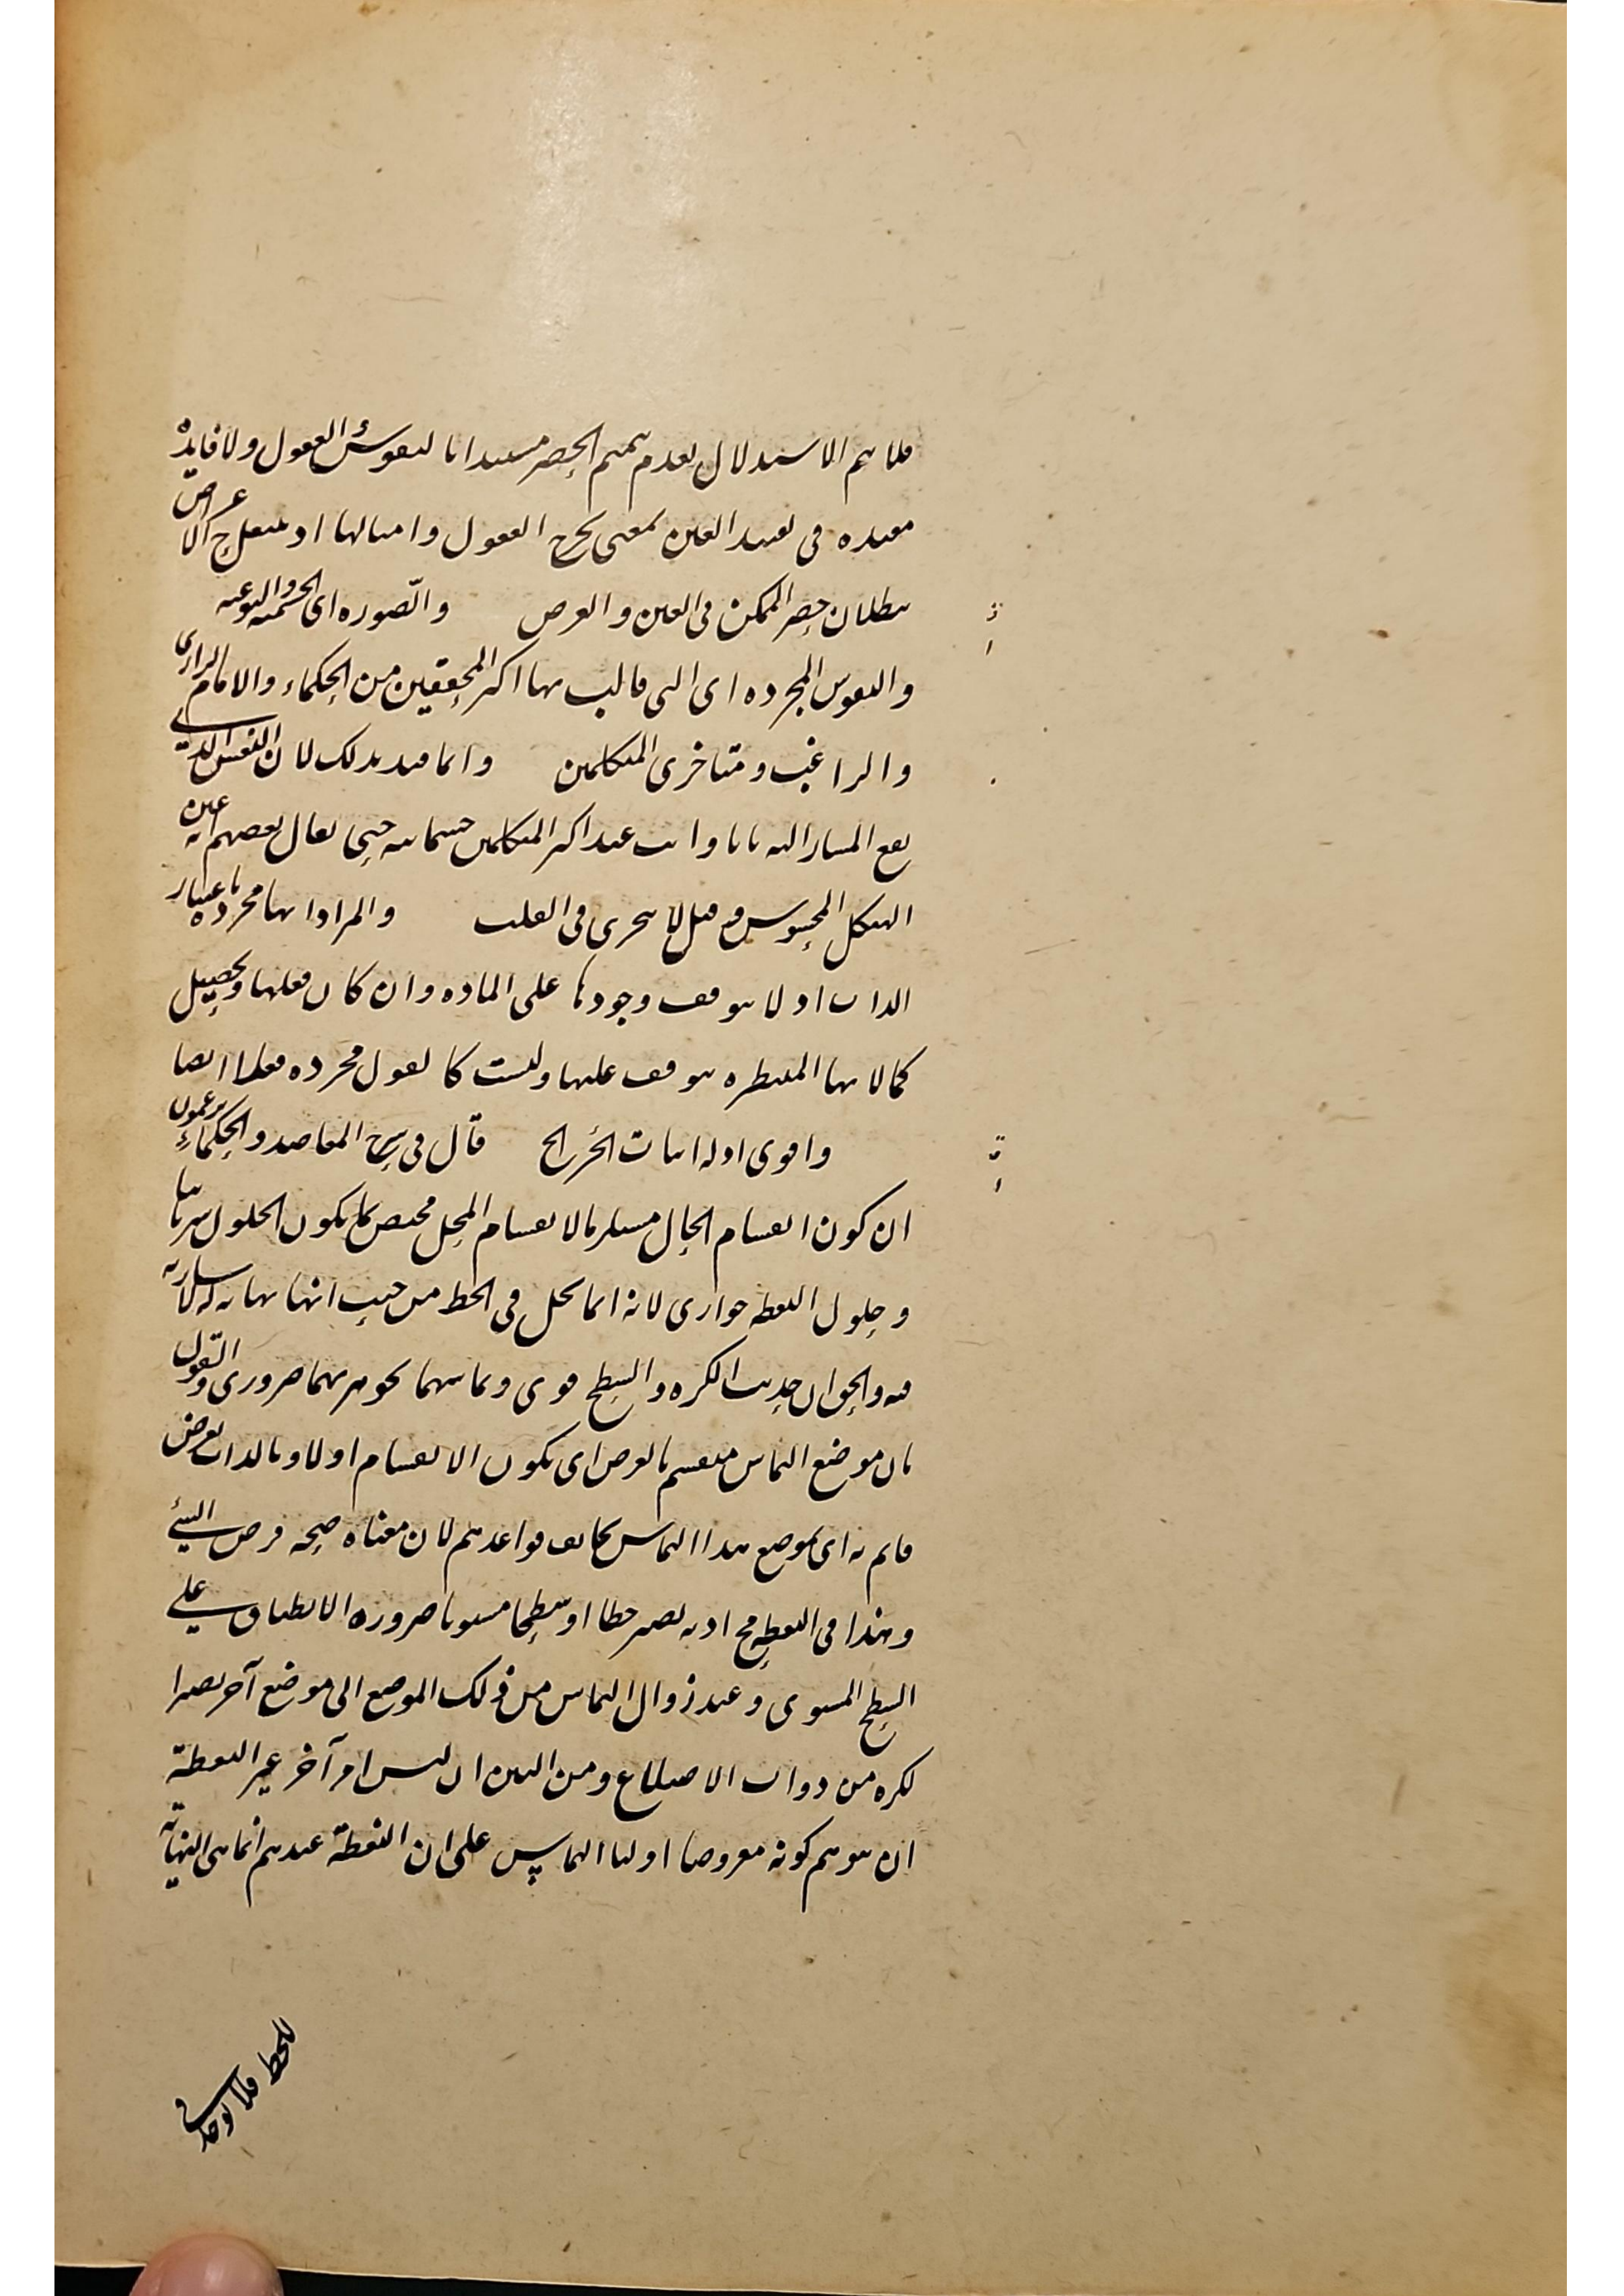 فلا يتم الاستدلال بعدم تتميم الحصر مستندا بالنفوس العقول ولا فايدة
معتده فى تقييد العين بمعنى يخرج العقول وامثالها اذ الاعراض
ببطلان حصر الممكن فى العين والعرض والصوره اى الجسميه والنوعيه
والنفوس المجرده اى التى قالت بها اكثر المحققين من الحكماء والامام الرازى
والراغب ومتاخرى المتكلمين وانما قيد بذلك لان النفس التى
يقع المشار اليه بانا وانت عند اكثر المتكلمين جسمانيه حتى قال بعضهم انه عين
الهيكل المحسوس وقيل لا يتجزى فى القلب والمراد انها مجرده باعتبار
الذات اذ لا يتوقف وجودها على الماده وان كان فعلها وتحصيل
كمالاتها المنتظره يتوقف عليها وليست كالعقول مجرده فعلا ايضا
واقوى ادله اثبات الجزء الخ قال فى شرح المقاصد والحكماء يزعمون
ان كون انقسام الحال مستلزما لانقسام المحل مختص بما يكون الحلول سريانيا
وحلول النقطه جوارى لانه انما يحل فى الخط من حيث انها نهايه له لا ساريه
فيه والحق ان حديث الكره والسطح قوى وتماسهما بجوهريهما ضرورى والقول
بان موضع التماس منقسم بالعرض اى يكون الانقسام اولا وبالذات لعرض
قايم به اى بموضع هذا التماس يخالف قواعدهم لان معناه صحه فرض الشئ
وهذا فى النقطه مح اذ به يصير خطا او سطحا مستويا ضروره الانطباق على
السطح المستوى وعند زوال التماس من ذلك الموضع الى موضع آخر يصير
لكره من ذوات الاضلاع ومن البين ان ليس امر آخر غير النقطة
ان يتوهم كونه معروضا اوليا التماس على ان النقطة عندهم انما هى النهاية
للخط فلا توجد فى